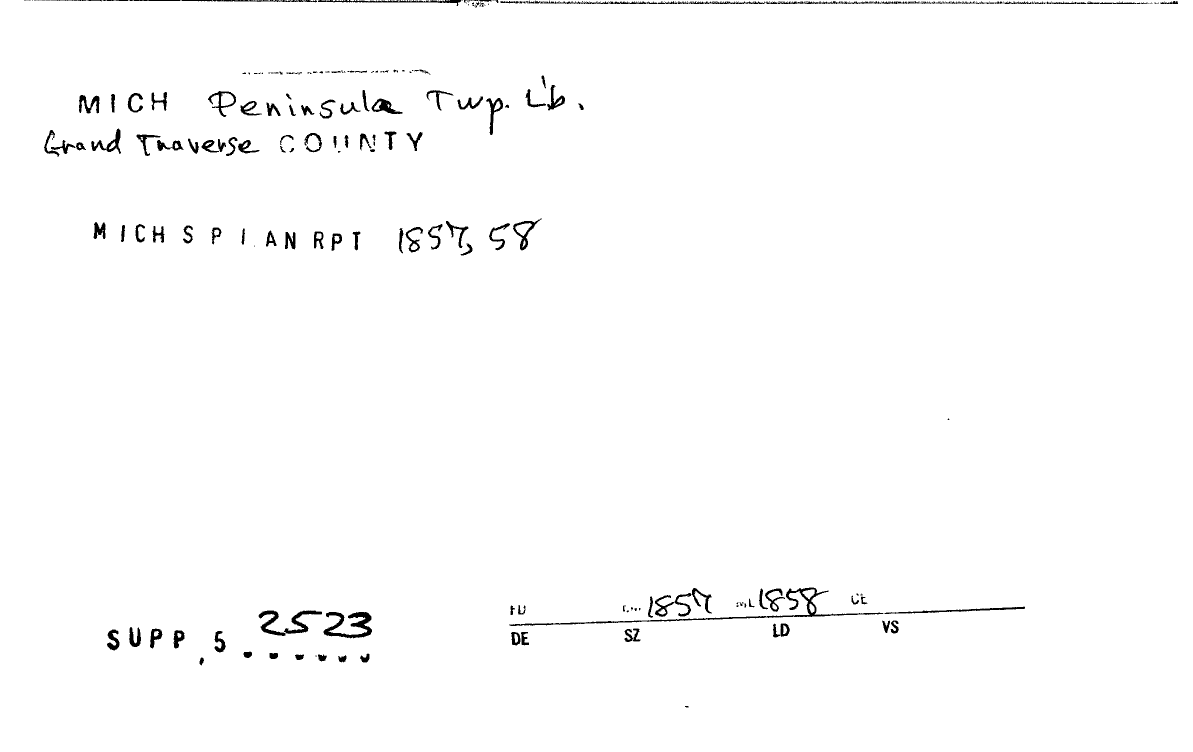 MICH Peninsula Twp. Lib.
Grand Traverse COUNTY
MICH S P I ANRPT 1857, 58
SUPP, 5 2523
1857 1858 CE
DE SZ LD VS